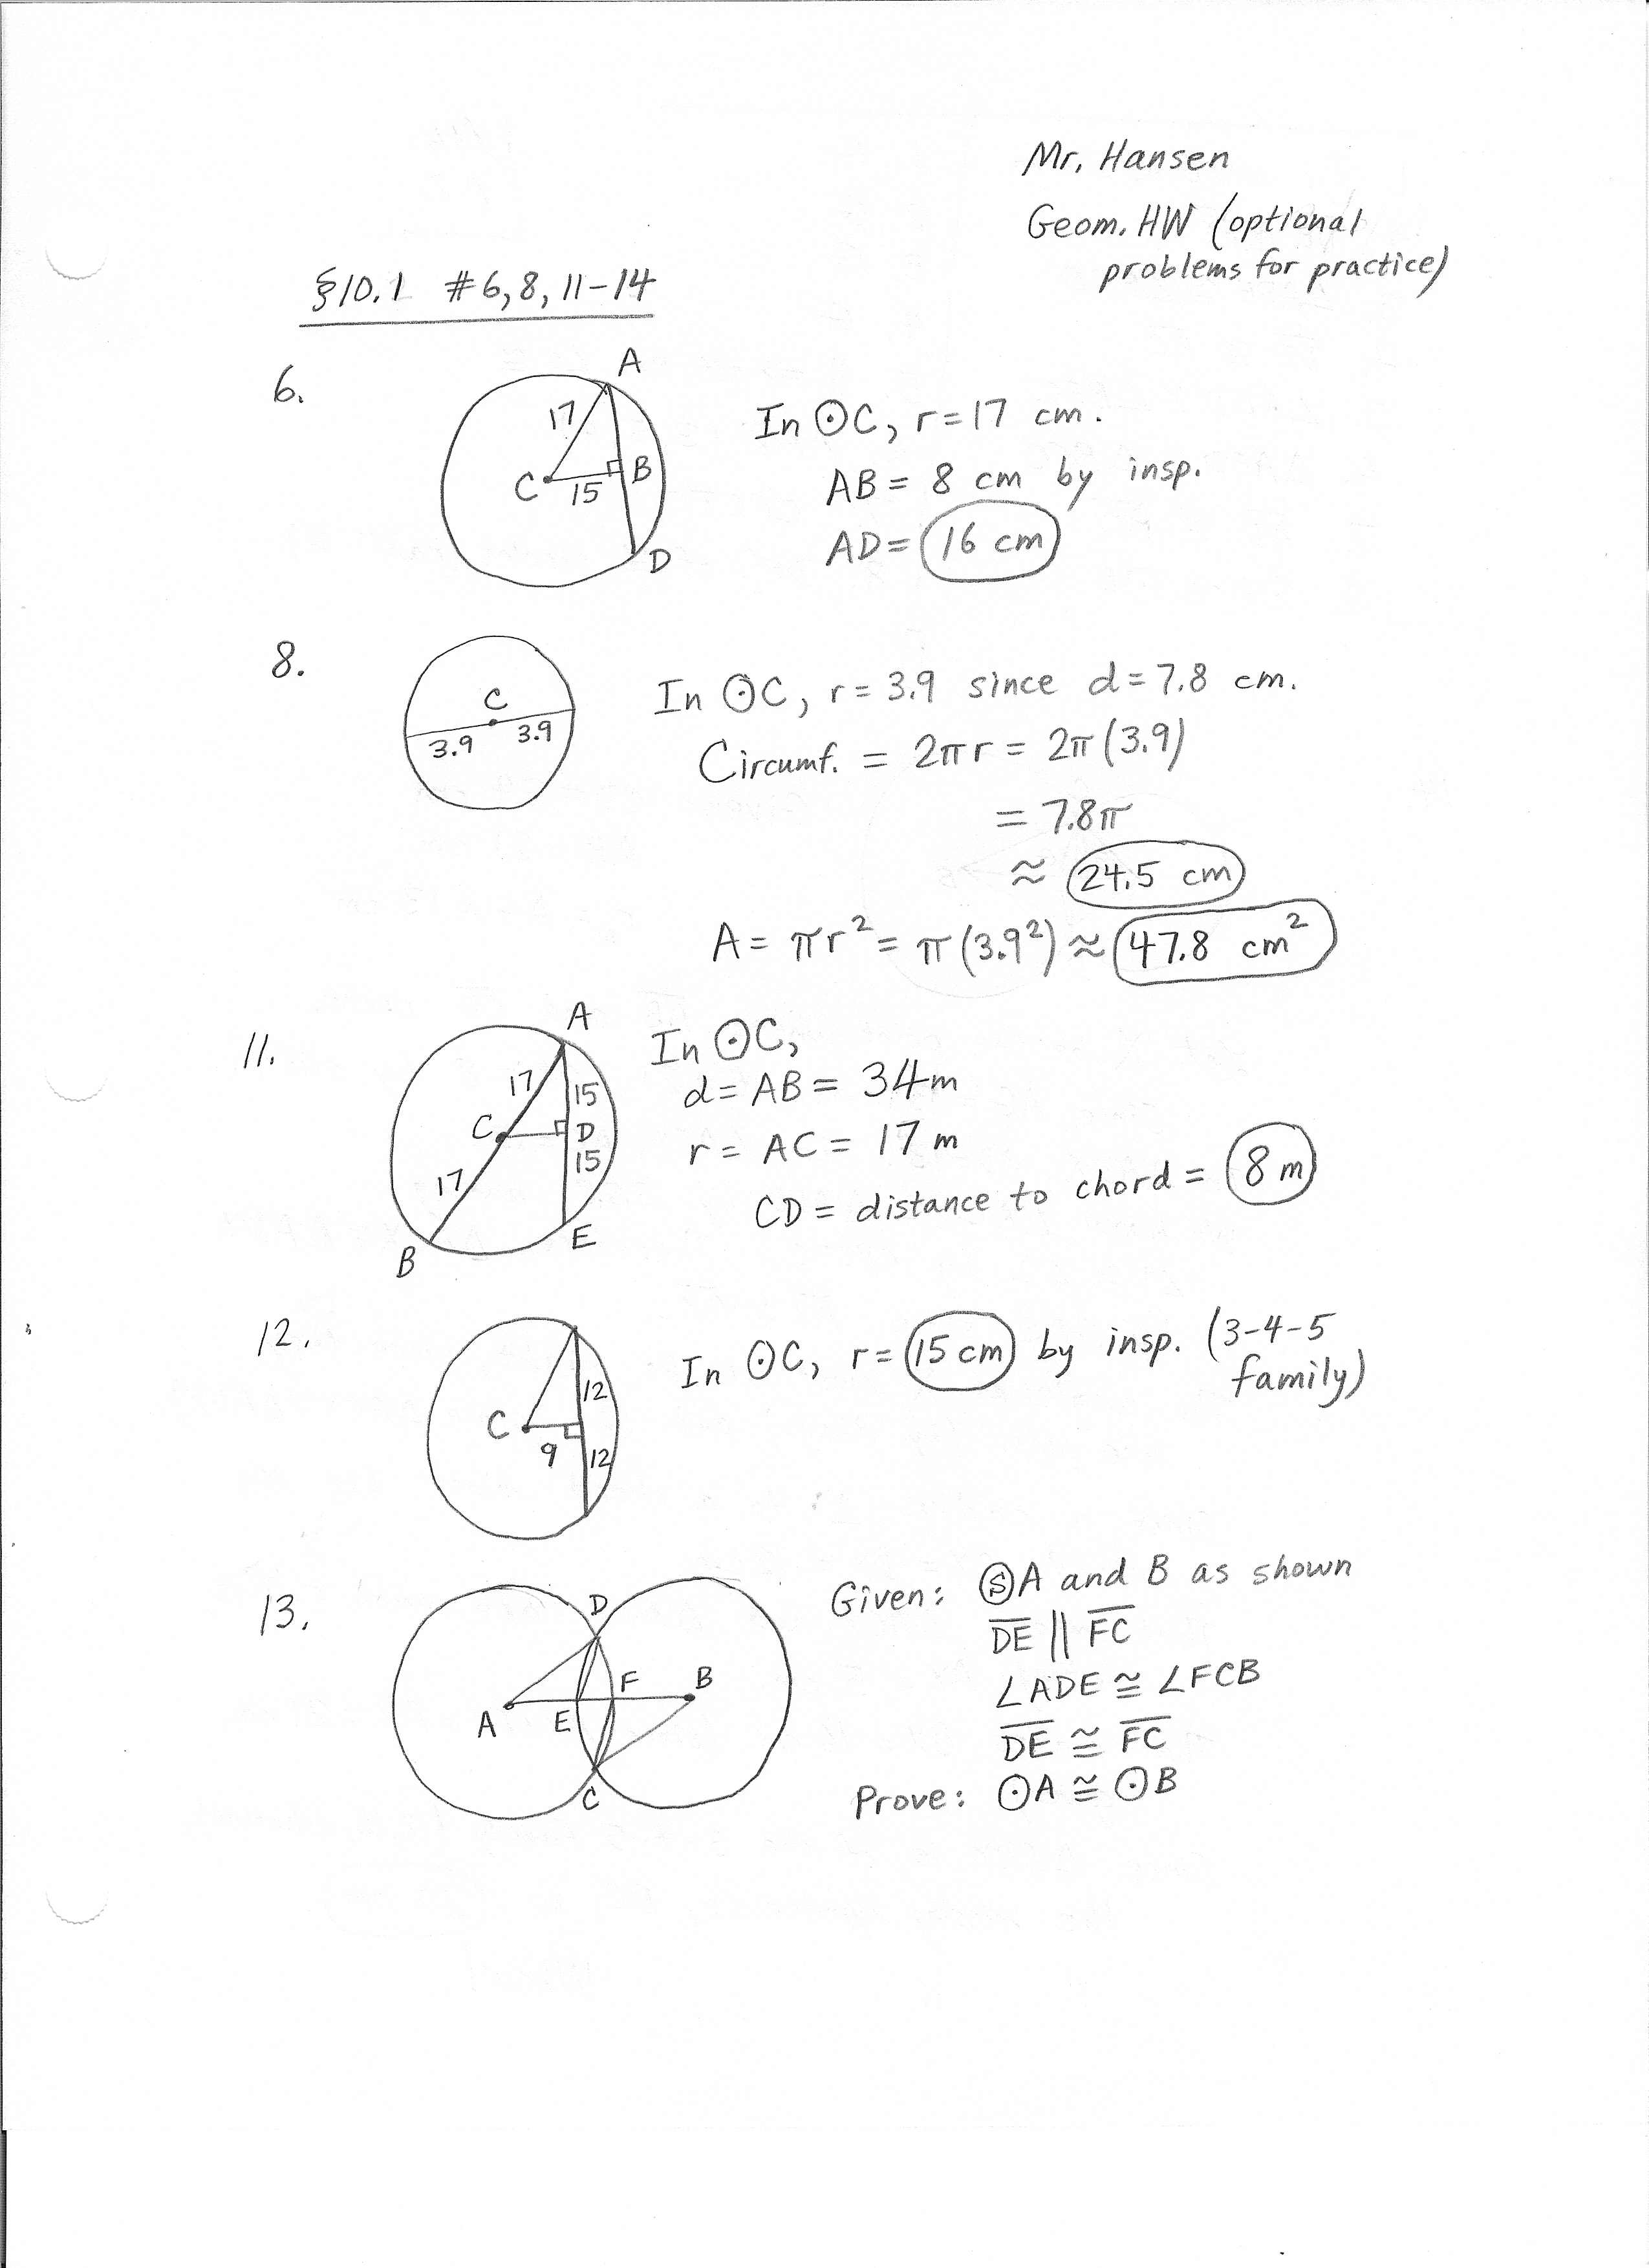 Mr. Hansen
Geom. HW (optional
problems for practice)
§10.1 #6, 8, 11-14
6.
A
17
C
15
B
D
In ⊙C, r=17 cm.
AB = 8 cm by insp.
AD= 16 cm
8.
C
3.9 3.9
In ⊙C, r= 3.9 since d=7.8 cm.
Circumf. = 2πr = 2π(3.9)
= 7.8π
≈ 24.5 cm
A = πr² = π(3.9²) ≈ 47.8 cm²
11.
A
17
15
C
D
15
17
E
B
In ⊙C,
d= AB = 34m
r = AC = 17 m
CD = distance to chord = 8 m
12.
12
C
9
12
In ⊙C, r= 15 cm by insp. (3-4-5
family)
13.
D
F
B
A
E
C
Given: ⓈA and B as shown
D̅E̅ || F̅C̅
∠ADE ≅ ∠FCB
D̅E̅ ≅ F̅C̅
Prove: ⊙A ≅ ⊙B